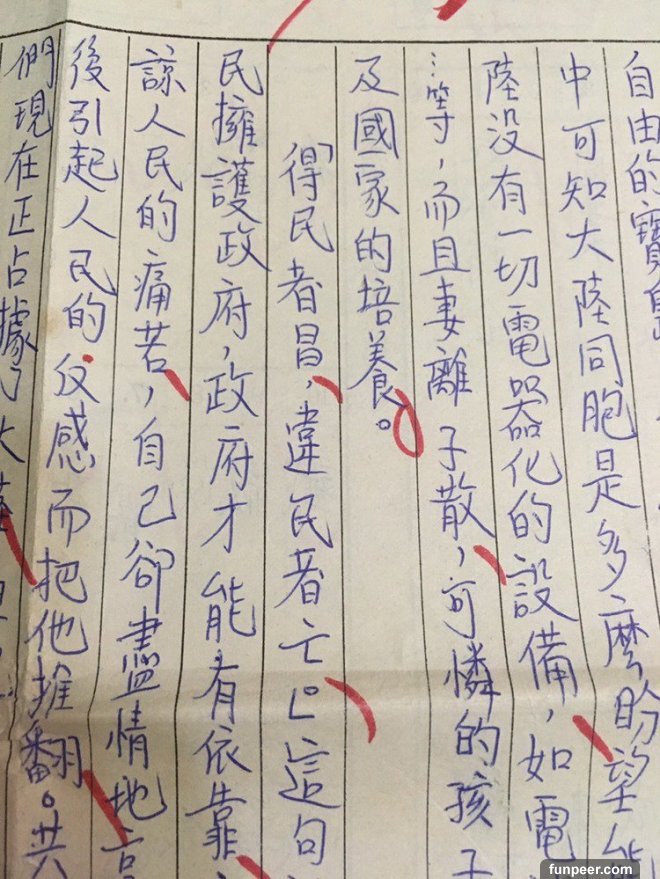 自由的寶島
中可知大陸同胞是多麼盼望能
陸没有一切電器化的設備，如電
…等，而且妻離子散，可憐的孩子
及國家的培養。
「得民者昌，違民者亡。」這句
民擁護政府，政府才能有依靠，
諒人民的痛苦，自己卻盡情地
後引起人民的反感而把他推翻。共
們現在正占據了大陸
funpeer.com